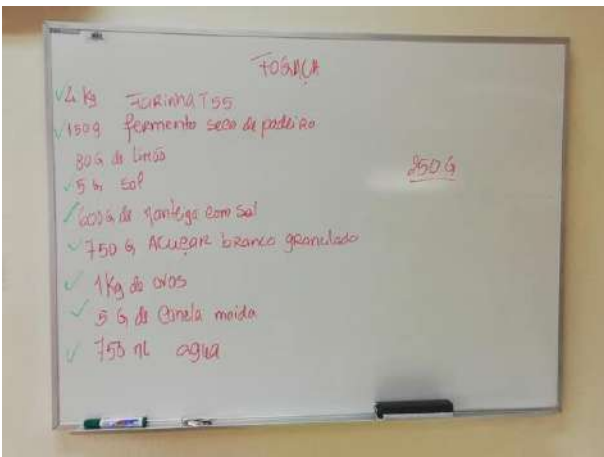 FOGAÇA
4 kg Farinha T55
150g fermento seco de padeiro
80G de limão
5 G sal
600G de Manteiga com sal
750 G Açucar branco granulado
250G
1Kg de ovos
5 G de Canela moida
750 ml agua